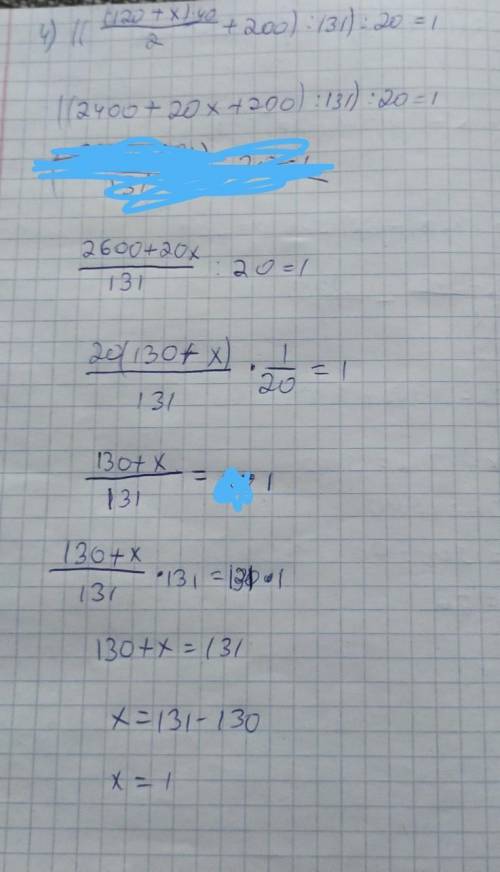 4) (( ((120 + x)·40)/2 + 200) : 131) : 20 = 1
((2400 + 20x + 200) : 131) : 20 = 1
(2600+20x)/131 : 20 = 1
20(130 + x)/131 · 1/20 = 1
(130 + x)/131 = 1
(130 + x)/131 · 131 = 131 · 1
130 + x = 131
x = 131 - 130
x = 1